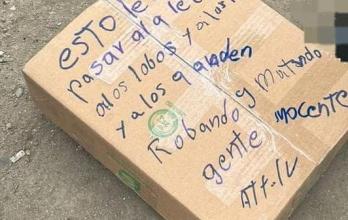 esto le
pasar al a le
alos lobos y a los
y a los q anden
Robando y matando
gente inocente
Att. IV